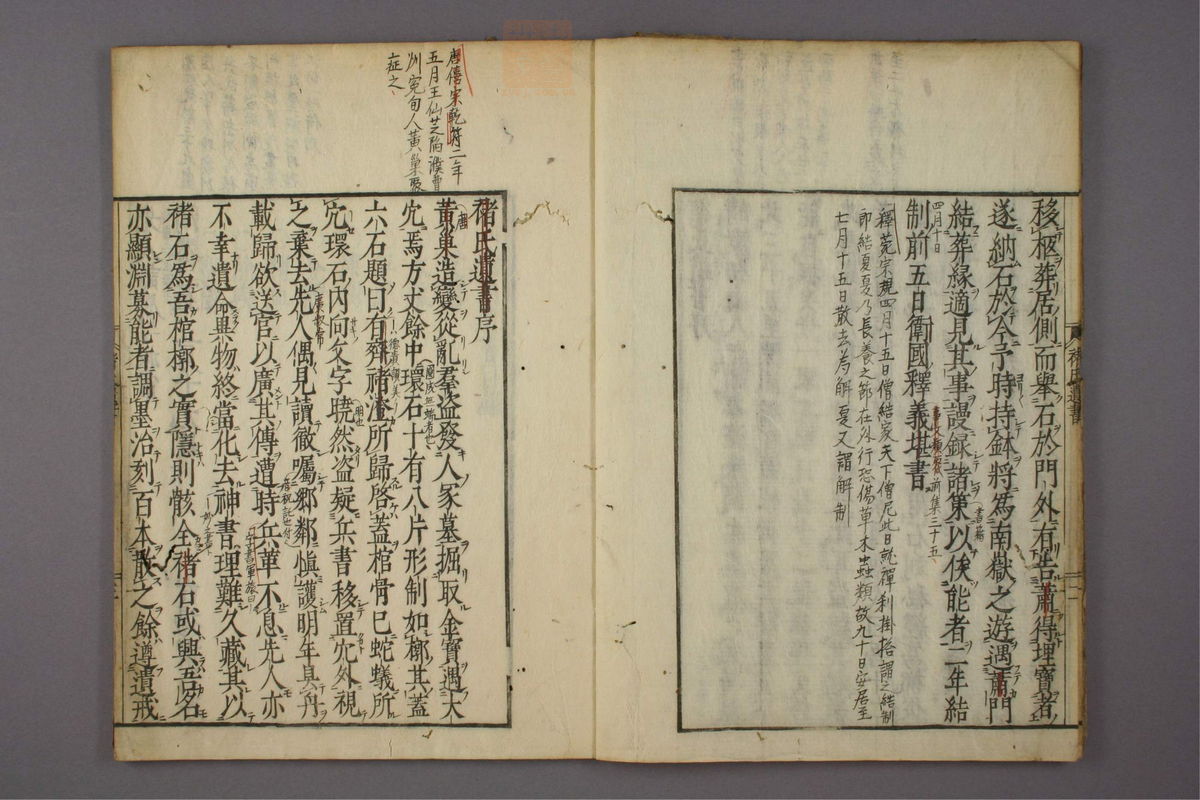 移柩葬居側而舉石於門外有告蕭得埋寶者
遂納石於令予時持鉢將爲南嶽之遊遇蕭門
結葬縁適見其事謾録諸䇿以俟能者二年結
四月十日
制前五日衛國釋義堪書
釋苑宗規四月十五日僧結家天下僧尼此日就禪刹掛搭謂之結制
即結夏夏乃長養之節在外行恐傷草木蟲類故九十日安居至
七月十五日散去為解夏又謂解制
褚氏遺書
唐僖宗乾符二年
五月王仙芝陷濮曹
州寃句人黃巢聚
應之
褚氏遺書序
黃巢造變從亂羣盗發人冢墓掘取金寶遇大
穴焉方丈餘中環石十有八片形制如槨其蓋
六石題曰有齊褚澄所歸啓蓋棺骨已蛇蟻所
穴環石内向文字曉然盗疑兵書移置穴外視
之棄去先人偶見讀徹囑鄉鄰愼護明年具丹
載歸欲送官以廣其傳遭時兵革不息先人亦
不幸遺命異物終當化去神書理難久藏其以
褚石爲吾棺槨之實隱則骸全褚石或興吾名
亦顯淵募能者調墨治刻百本散之餘遵遺戒